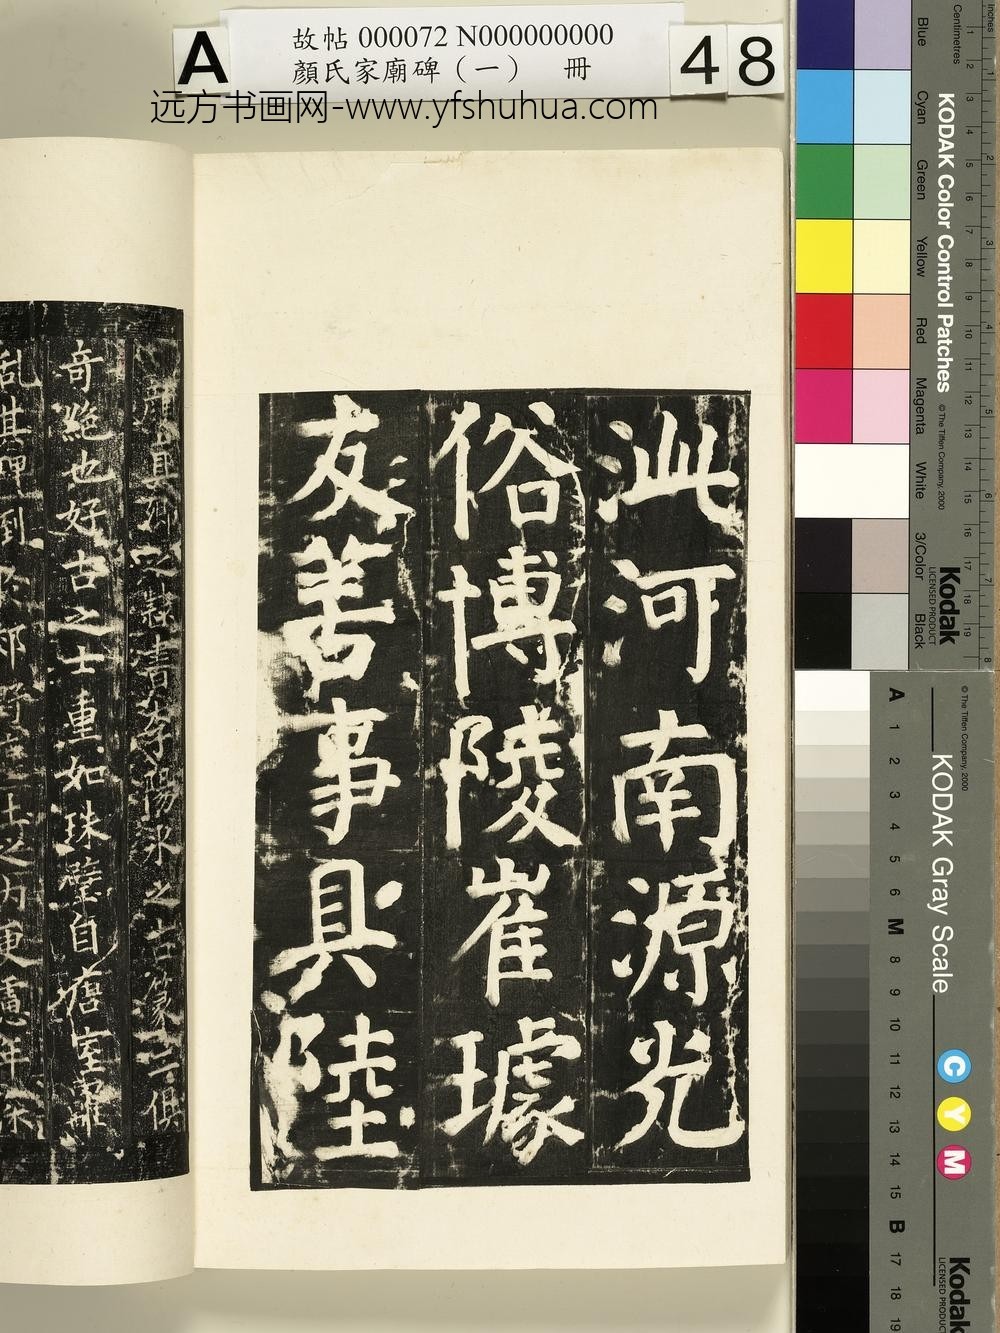 A
故帖 000072 N000000000
顏氏家廟碑（一） 冊
48
远方书画网-www.yfshuhua.com
泚河南源光
俗博陵崔璩
友善事具陸
奇絶也好古之士重如珠璧自唐室離
Inches
Centimetres
1 2 3 4 5 6 7 8 9 10 11 12 13 14 15 16 17 18 19
1 2 3 4 5 6 7 8
KODAK Color Control Patches
© The Tiffen Company, 2000
Kodak
LICENSED PRODUCT
Blue
Cyan
Green
Yellow
Red
Magenta
White
3/Color
Black
KODAK Gray Scale
© The Tiffen Company, 2000
C Y M
Kodak
LICENSED PRODUCT
A 1 2 3 4 5 6 M 8 9 10 11 12 13 14 15 B 17 18 19